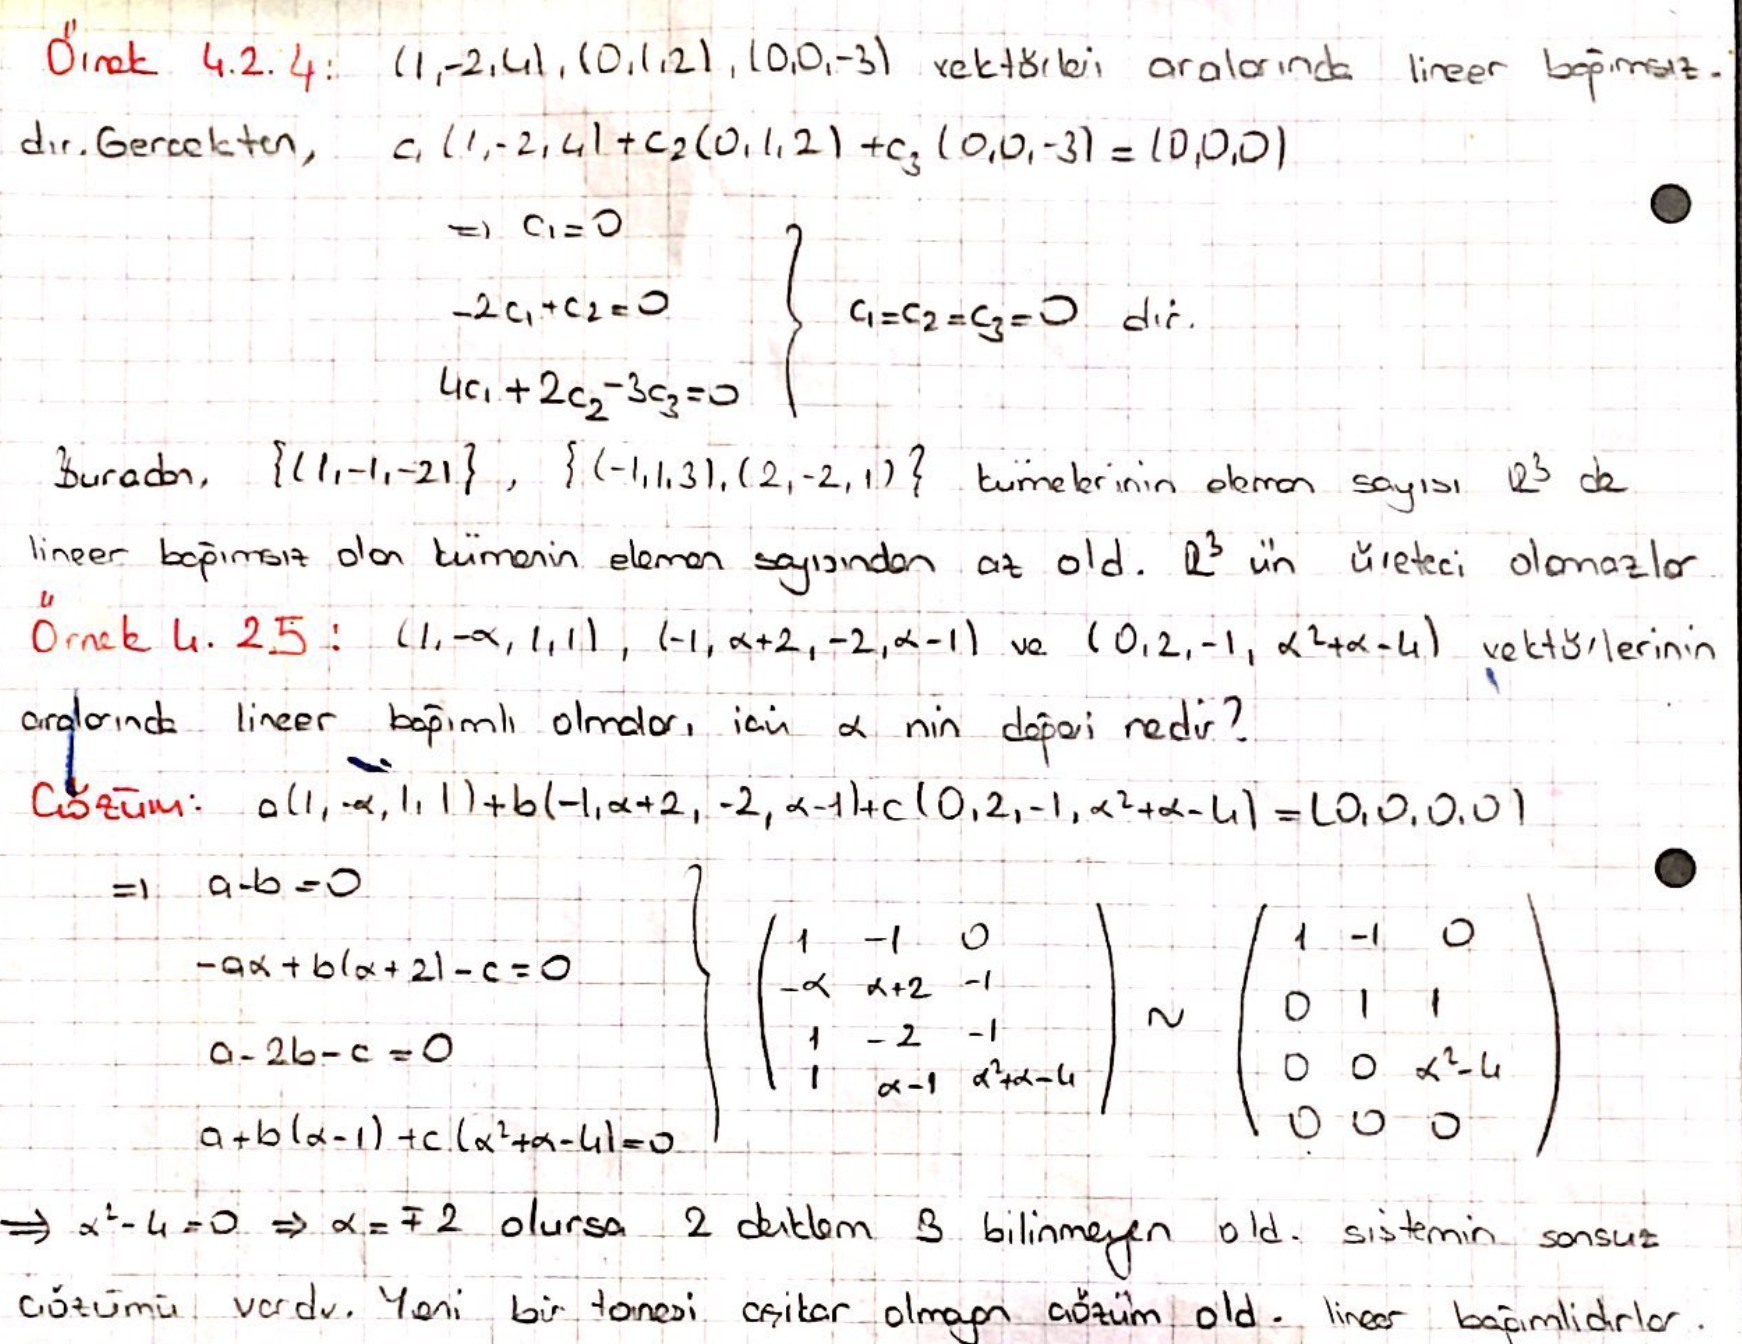 Örnek 4.2.4: (1,-2,4), (0,1,2), (0,0,-3) vektörleri aralarında lineer bağımsız-
dır. Gerçekten, c₁(1,-2,4)+c₂(0,1,2)+c₃(0,0,-3)=(0,0,0)
⇒ c₁=0
-2c₁+c₂=0
c₁=c₂=c₃=0 dır.
4c₁+2c₂-3c₃=0
Buradan, {(1,-1,-2)}, {(-1,1,3),(2,-2,1)} kümelerinin eleman sayısı ℝ³ de
lineer bağımsız olan kümenin eleman sayısından az old. ℝ³ ün üreteci olamazlar
Örnek 4.2.5: (1,-α,1,1), (-1,α+2,-2,α-1) ve (0,2,-1,α²+α-4) vektörlerinin
aralarında lineer bağımlı olmaları için α nin değeri nedir?
Çözüm: a(1,-α,1,1)+b(-1,α+2,-2,α-1)+c(0,2,-1,α²+α-4)=(0,0,0,0)
⇒ a-b=0
-aα+b(α+2)-c=0
a-2b-c=0
a+b(α-1)+c(α²+α-4)=0
1 -1 0
-α α+2 -1
1 -2 -1
1 α-1 α²+α-4
~
1 -1 0
0 1 1
0 0 α²-4
0 0 0
⇒ α²-4=0 ⇒ α=∓2 olursa 2 denklem 3 bilinmeyen old. sistemin sonsuz
çözümü vardır. Yani bir tanesi aşikar olmayan çözüm old. lineer bağımlidırlar.